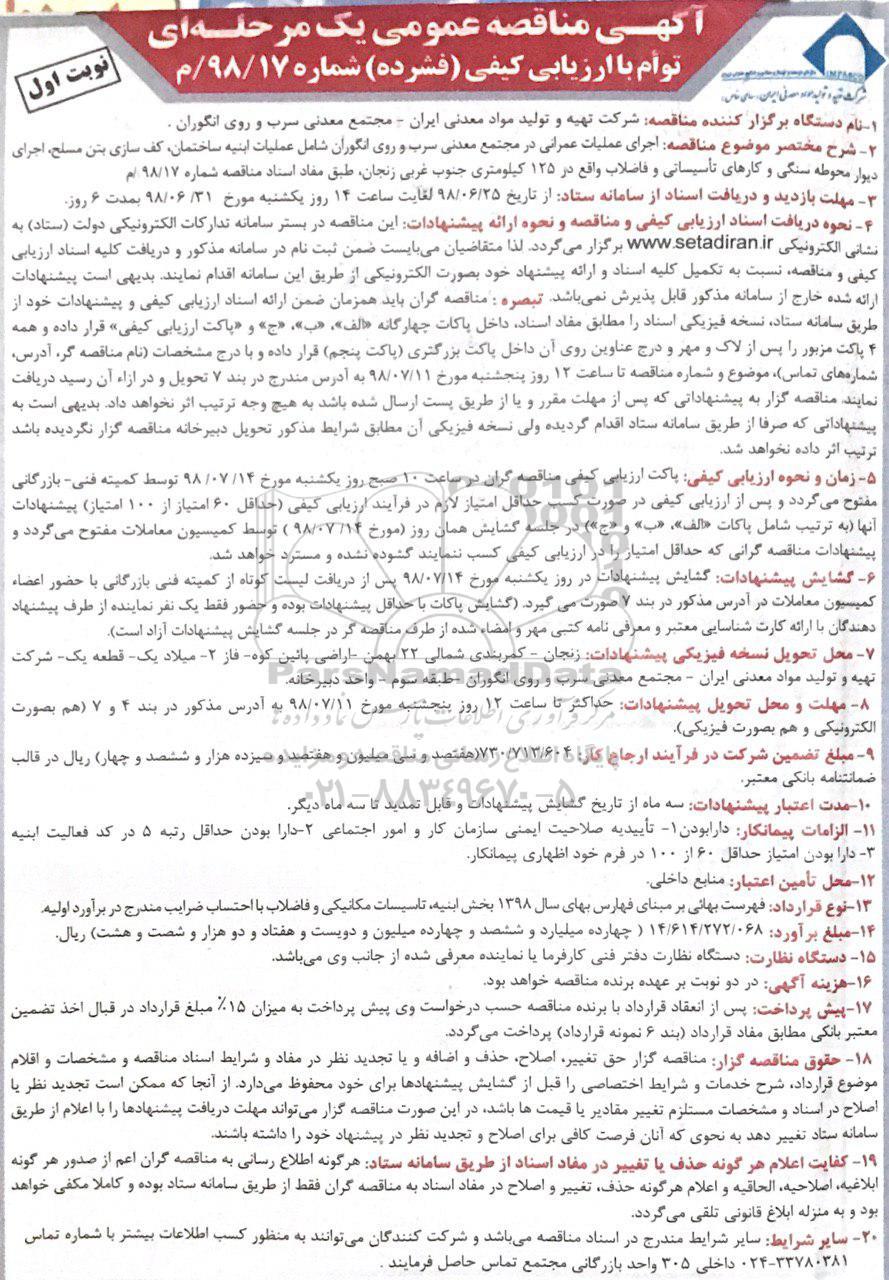 آگهی مناقصه عمومی یک مرحله‌ای
توأم با ارزیابی کیفی (فشرده) شماره ۹۸/۱۷/م
نوبت اول
IMPASCO
شرکت تهیه و تولید مواد معدنی ایران (سهامی خاص)
۱-نام دستگاه برگزار کننده مناقصه: شرکت تهیه و تولید مواد معدنی ایران - مجتمع معدنی سرب و روی انگوران .
۲- شرح مختصر موضوع مناقصه: اجرای عملیات عمرانی در مجتمع معدنی سرب و روی انگوران شامل عملیات ابنیه ساختمان، کف سازی بتن مسلح، اجرای
دیوار محوطه سنگی و کارهای تأسیساتی و فاضلاب واقع در ۱۲۵ کیلومتری جنوب غربی زنجان، طبق مفاد اسناد مناقصه شماره ۹۸/۱۷ /م
۳- مهلت بازدید و دریافت اسناد از سامانه ستاد: از تاریخ ۹۸/۰۶/۲۵ لغایت ساعت ۱۴ روز یکشنبه مورخ ۳۱/ ۹۸/۰۶ بمدت ۶ روز.
۴- نحوه دریافت اسناد ارزیابی کیفی و مناقصه و نحوه ارائه پیشنهادات: این مناقصه در بستر سامانه تدارکات الکترونیکی دولت (ستاد) به
نشانی الکترونیکی www.setadiran.ir برگزار می‌گردد. لذا متقاضیان می‌بایست ضمن ثبت نام در سامانه مذکور و دریافت کلیه اسناد ارزیابی
کیفی و مناقصه، نسبت به تکمیل کلیه اسناد و ارائه پیشنهاد خود بصورت الکترونیکی از طریق این سامانه اقدام نمایند. بدیهی است پیشنهادات
ارائه شده خارج از سامانه مذکور قابل پذیرش نمی‌باشد. تبصره : مناقصه گران باید همزمان ضمن ارائه اسناد ارزیابی کیفی و پیشنهادات خود از
طریق سامانه ستاد، نسخه فیزیکی اسناد را مطابق مفاد اسناد، داخل پاکات چهارگانه «الف»، «ب»، «ج» و «پاکت ارزیابی کیفی» قرار داده و همه
۴ پاکت مزبور را پس از لاک و مهر و درج عناوین روی آن داخل پاکت بزرگتری (پاکت پنجم) قرار داده و با درج مشخصات (نام مناقصه گر، آدرس،
شماره‌های تماس)، موضوع و شماره مناقصه تا ساعت ۱۲ روز پنجشنبه مورخ ۹۸/۰۷/۱۱ به آدرس مندرج در بند ۷ تحویل و در ازاء آن رسید دریافت
نمایند. مناقصه گزار به پیشنهاداتی که پس از مهلت مقرر و یا از طریق پست ارسال شده باشد به هیچ وجه ترتیب اثر نخواهد داد. بدیهی است به
پیشنهاداتی که صرفا از طریق سامانه ستاد اقدام گردیده ولی نسخه فیزیکی آن مطابق شرایط مذکور تحویل دبیرخانه مناقصه گزار نگردیده باشد
ترتیب اثر داده نخواهد شد.
۵- زمان و نحوه ارزیابی کیفی: پاکت ارزیابی کیفی مناقصه گران در ساعت ۱۰ صبح روز یکشنبه مورخ ۱۴/ ۰۷/ ۹۸ توسط کمیته فنی- بازرگانی
مفتوح می‌گردد و پس از ارزیابی کیفی در صورت کسب حداقل امتیاز لازم در فرآیند ارزیابی کیفی (حداقل ۶۰ امتیاز از ۱۰۰ امتیاز) پیشنهادات
آنها (به ترتیب شامل پاکات «الف»، «ب» و «ج») در جلسه گشایش همان روز (مورخ ۱۴/ ۹۸/۰۷ ) توسط کمیسیون معاملات مفتوح می‌گردد و
پیشنهادات مناقصه گرانی که حداقل امتیاز را در ارزیابی کیفی کسب ننمایند گشوده نشده و مسترد خواهد شد.
۶- گشایش پیشنهادات: گشایش پیشنهادات در روز یکشنبه مورخ ۹۸/۰۷/۱۴ پس از دریافت لیست کوتاه از کمیته فنی بازرگانی با حضور اعضاء
کمیسیون معاملات در آدرس مذکور در بند ۷ صورت می گیرد. (گشایش پاکات با حداقل پیشنهادات بوده و حضور فقط یک نفر نماینده از طرف پیشنهاد
دهندگان با ارائه کارت شناسایی معتبر و معرفی نامه کتبی مهر و امضاء شده از طرف مناقصه گر در جلسه گشایش پیشنهادات آزاد است).
۷- محل تحویل نسخه فیزیکی پیشنهادات: زنجان - کمربندی شمالی ۲۲ بهمن -اراضی پائین کوه- فاز ۲- میلاد یک- قطعه یک- شرکت
تهیه و تولید مواد معدنی ایران - مجتمع معدنی سرب و روی انگوران -طبقه سوم - واحد دبیرخانه.
۸- مهلت و محل تحویل پیشنهادات: حداکثر تا ساعت ۱۲ روز پنجشنبه مورخ ۹۸/۰۷/۱۱ به آدرس مذکور در بند ۴ و ۷ (هم بصورت
الکترونیکی و هم بصورت فیزیکی).
۹- مبلغ تضمین شرکت در فرآیند ارجاع کار: ۷۳۰/۷۱۳/۶۰۴(هفتصد و سی میلیون و هفتصد و سیزده هزار و ششصد و چهار) ریال در قالب
ضمانتنامه بانکی معتبر.
۱۰-مدت اعتبار پیشنهادات: سه ماه از تاریخ گشایش پیشنهادات و قابل تمدید تا سه ماه دیگر.
۱۱- الزامات پیمانکار: دارابودن۱- تأییدیه صلاحیت ایمنی سازمان کار و امور اجتماعی ۲-دارا بودن حداقل رتبه ۵ در کد فعالیت ابنیه
۳- دارا بودن امتیاز حداقل ۶۰ از ۱۰۰ در فرم خود اظهاری پیمانکار.
۱۲-محل تأمین اعتبار: منابع داخلی.
۱۳-نوع قرارداد: فهرست بهائی بر مبنای فهارس بهای سال ۱۳۹۸ بخش ابنیه، تاسیسات مکانیکی و فاضلاب با احتساب ضرایب مندرج در برآورد اولیه.
۱۴-مبلغ برآورد: ۱۴/۶۱۴/۲۷۲/۰۶۸ ( چهارده میلیارد و ششصد و چهارده میلیون و دویست و هفتاد و دو هزار و شصت و هشت) ریال.
۱۵- دستگاه نظارت: دستگاه نظارت دفتر فنی کارفرما یا نماینده معرفی شده از جانب وی می‌باشد.
۱۶-هزینه آگهی: در دو نوبت بر عهده برنده مناقصه خواهد بود.
۱۷-پیش پرداخت: پس از انعقاد قرارداد با برنده مناقصه حسب درخواست وی پیش پرداخت به میزان ۱۵٪ مبلغ قرارداد در قبال اخذ تضمین
معتبر بانکی مطابق مفاد قرارداد (بند ۶ نمونه قرارداد) پرداخت می‌گردد.
۱۸- حقوق مناقصه گزار: مناقصه گزار حق تغییر، اصلاح، حذف و اضافه و یا تجدید نظر در مفاد و شرایط اسناد مناقصه و مشخصات و اقلام
موضوع قرارداد، شرح خدمات و شرایط اختصاصی را قبل از گشایش پیشنهادها برای خود محفوظ می‌دارد. از آنجا که ممکن است تجدید نظر یا
اصلاح در اسناد و مشخصات مستلزم تغییر مقادیر یا قیمت ها باشد، در این صورت مناقصه گزار می‌تواند مهلت دریافت پیشنهادها را با اعلام از طریق
سامانه ستاد تغییر دهد به نحوی که آنان فرصت کافی برای اصلاح و تجدید نظر در پیشنهاد خود را داشته باشند.
۱۹- کفایت اعلام هر گونه حذف یا تغییر در مفاد اسناد از طریق سامانه ستاد: هرگونه اطلاع رسانی به مناقصه گران اعم از صدور هر گونه
ابلاغیه، اصلاحیه، الحاقیه و اعلام هرگونه حذف، تغییر و اصلاح در مفاد اسناد به مناقصه گران فقط از طریق سامانه ستاد بوده و کاملا مکفی خواهد
بود و به منزله ابلاغ قانونی تلقی می‌گردد.
۲۰- سایر شرایط: سایر شرایط مندرج در اسناد مناقصه می‌باشد و شرکت کنندگان می‌توانند به منظور کسب اطلاعات بیشتر با شماره تماس
۰۲۴-۳۳۷۸۰۳۸۱ داخلی ۳۰۵ واحد بازرگانی مجتمع تماس حاصل فرمایند .
ParsNamadData
مرکز فرآوری اطلاعات پارس نماد داده ها
پایگاه اطلاع رسانی مناقصه و مزایده
۰۲۱-۸۸۳۴۹۶۷۰-۵